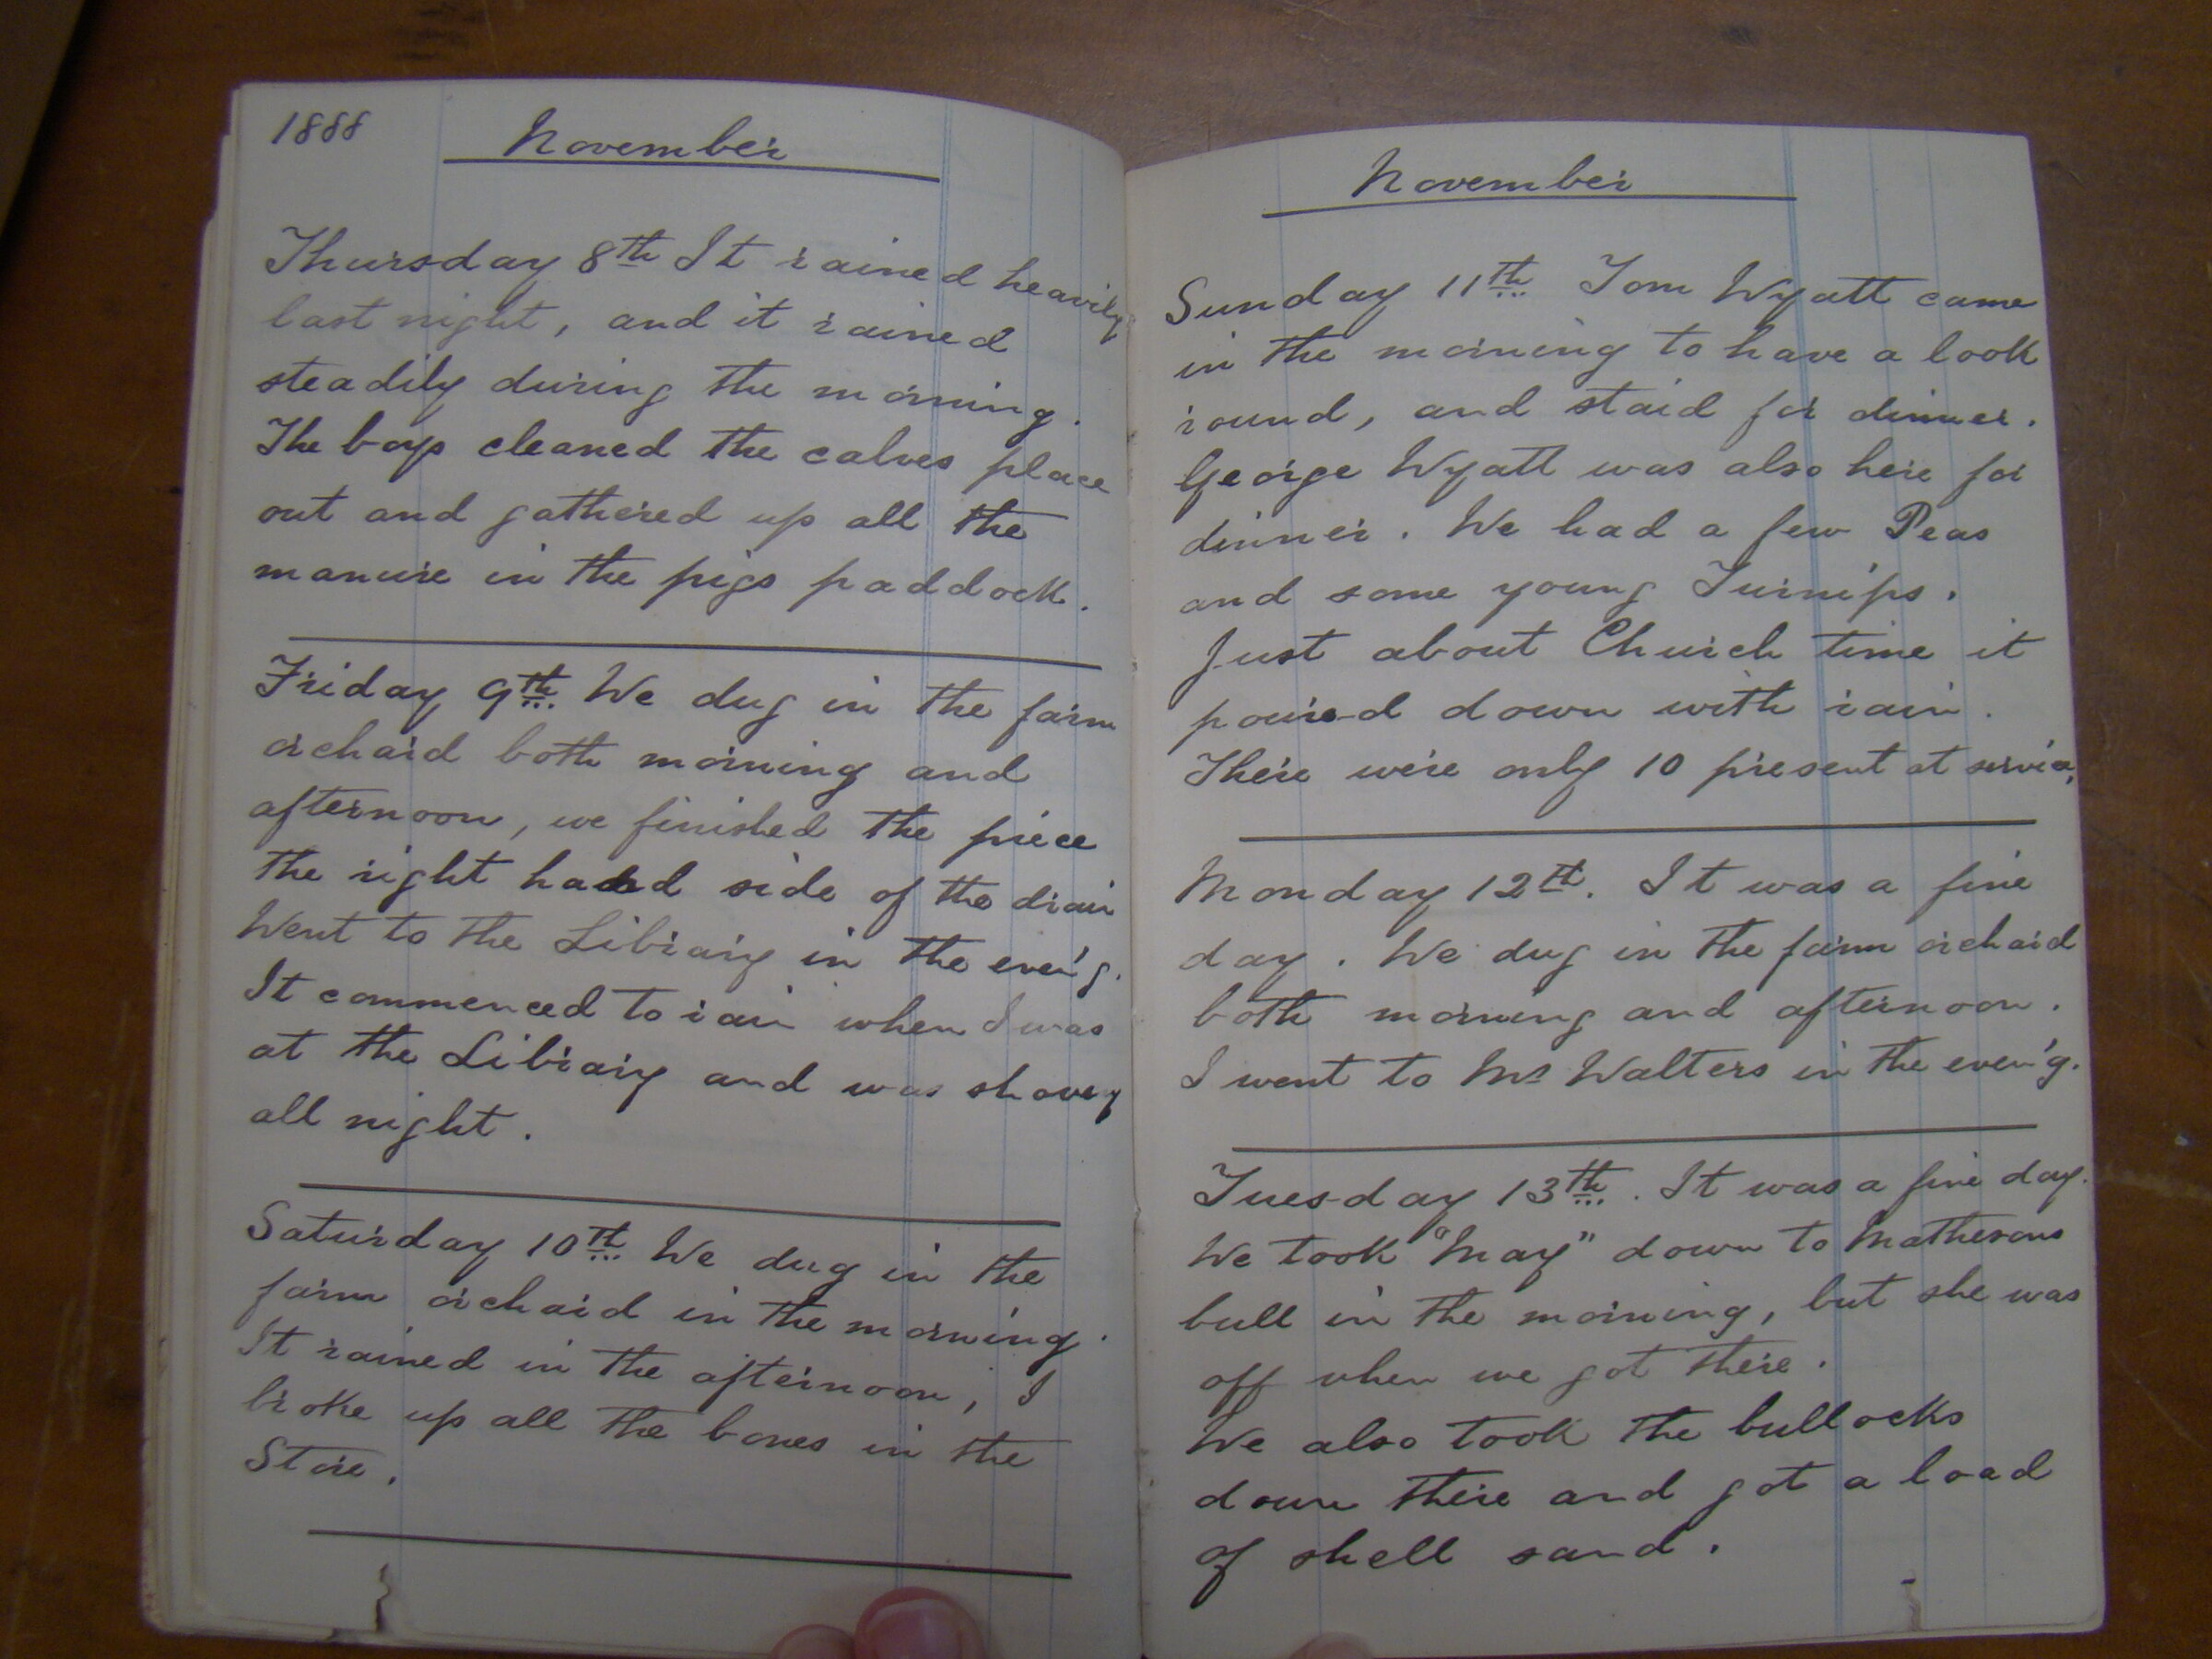 1888 November
Thursday 8th It rained heavily
last night, and it rained
steadily during the morning.
The boys cleaned the calves place
out and gathered up all the
manure in the pigs paddock.
Friday 9th We dug in the farm
orchard both morning and
afternoon, we finished the piece
the right hand side of the drain
Went to the Library in the even'g.
It commenced to rain when I was
at the Library and was showy
all night.
Saturday 10th We dug in the
farm orchard in the morning.
It rained in the afternoon, I
broke up all the bones in the
Store.
November
Sunday 11th Tom Wyatt came
in the morning to have a look
round, and staid for dinner.
George Wyatt was also here for
dinner. We had a few Peas
and some young Turnips.
Just about Church time it
poured down with rain.
There were only 10 present at service,
Monday 12th. It was a fine
day. We dug in the farm orchard
both morning and afternoon.
I went to Mr Walters in the even'g.
Tuesday 13th. It was a fine day.
We took "May" down to Mathesons
bull in the morning, but she was
off when we got there.
We also took the bullocks
down there and got a load
of shell sand.